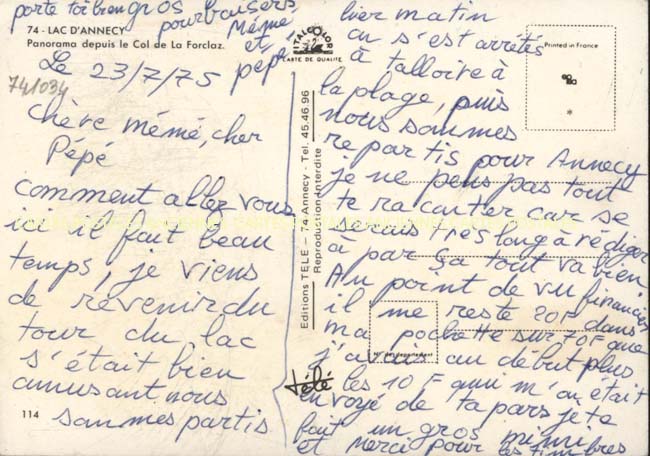 porte toi bien gros
pour baisers
Mémé
et
pépé
74 - LAC D'ANNECY
Panorama depuis le Col de La Forclaz.
74/034
Le 23/7/75
chère mémé, cher
Pépé
comment allez vous
ici il fait beau
temps, je viens
de revenir du
tour du lac
s'était bien
amusant nous
sommes partis
114
ITALCOLOR
CARTE DE QUALITÉ
Editions TELE — 74 Annecy - Tel. 45.46.96
Reproduction interdite
Télé
Printed in France
*
hier matin
on s'est arrêtés
à talloire à
la plage, puis
nous sommes
repartis pour Annecy
je ne peus pas tout
te raconter car se
serais très long à rédiger
à par ça tout va bien
Au point de vu financiés
il me reste 20F dans
ma pochette sur 70F que
j'avais au début plus
les 10F qun m'on était
envoyé de ta pars je te
fait un gros mimi
et merci pour les timbres